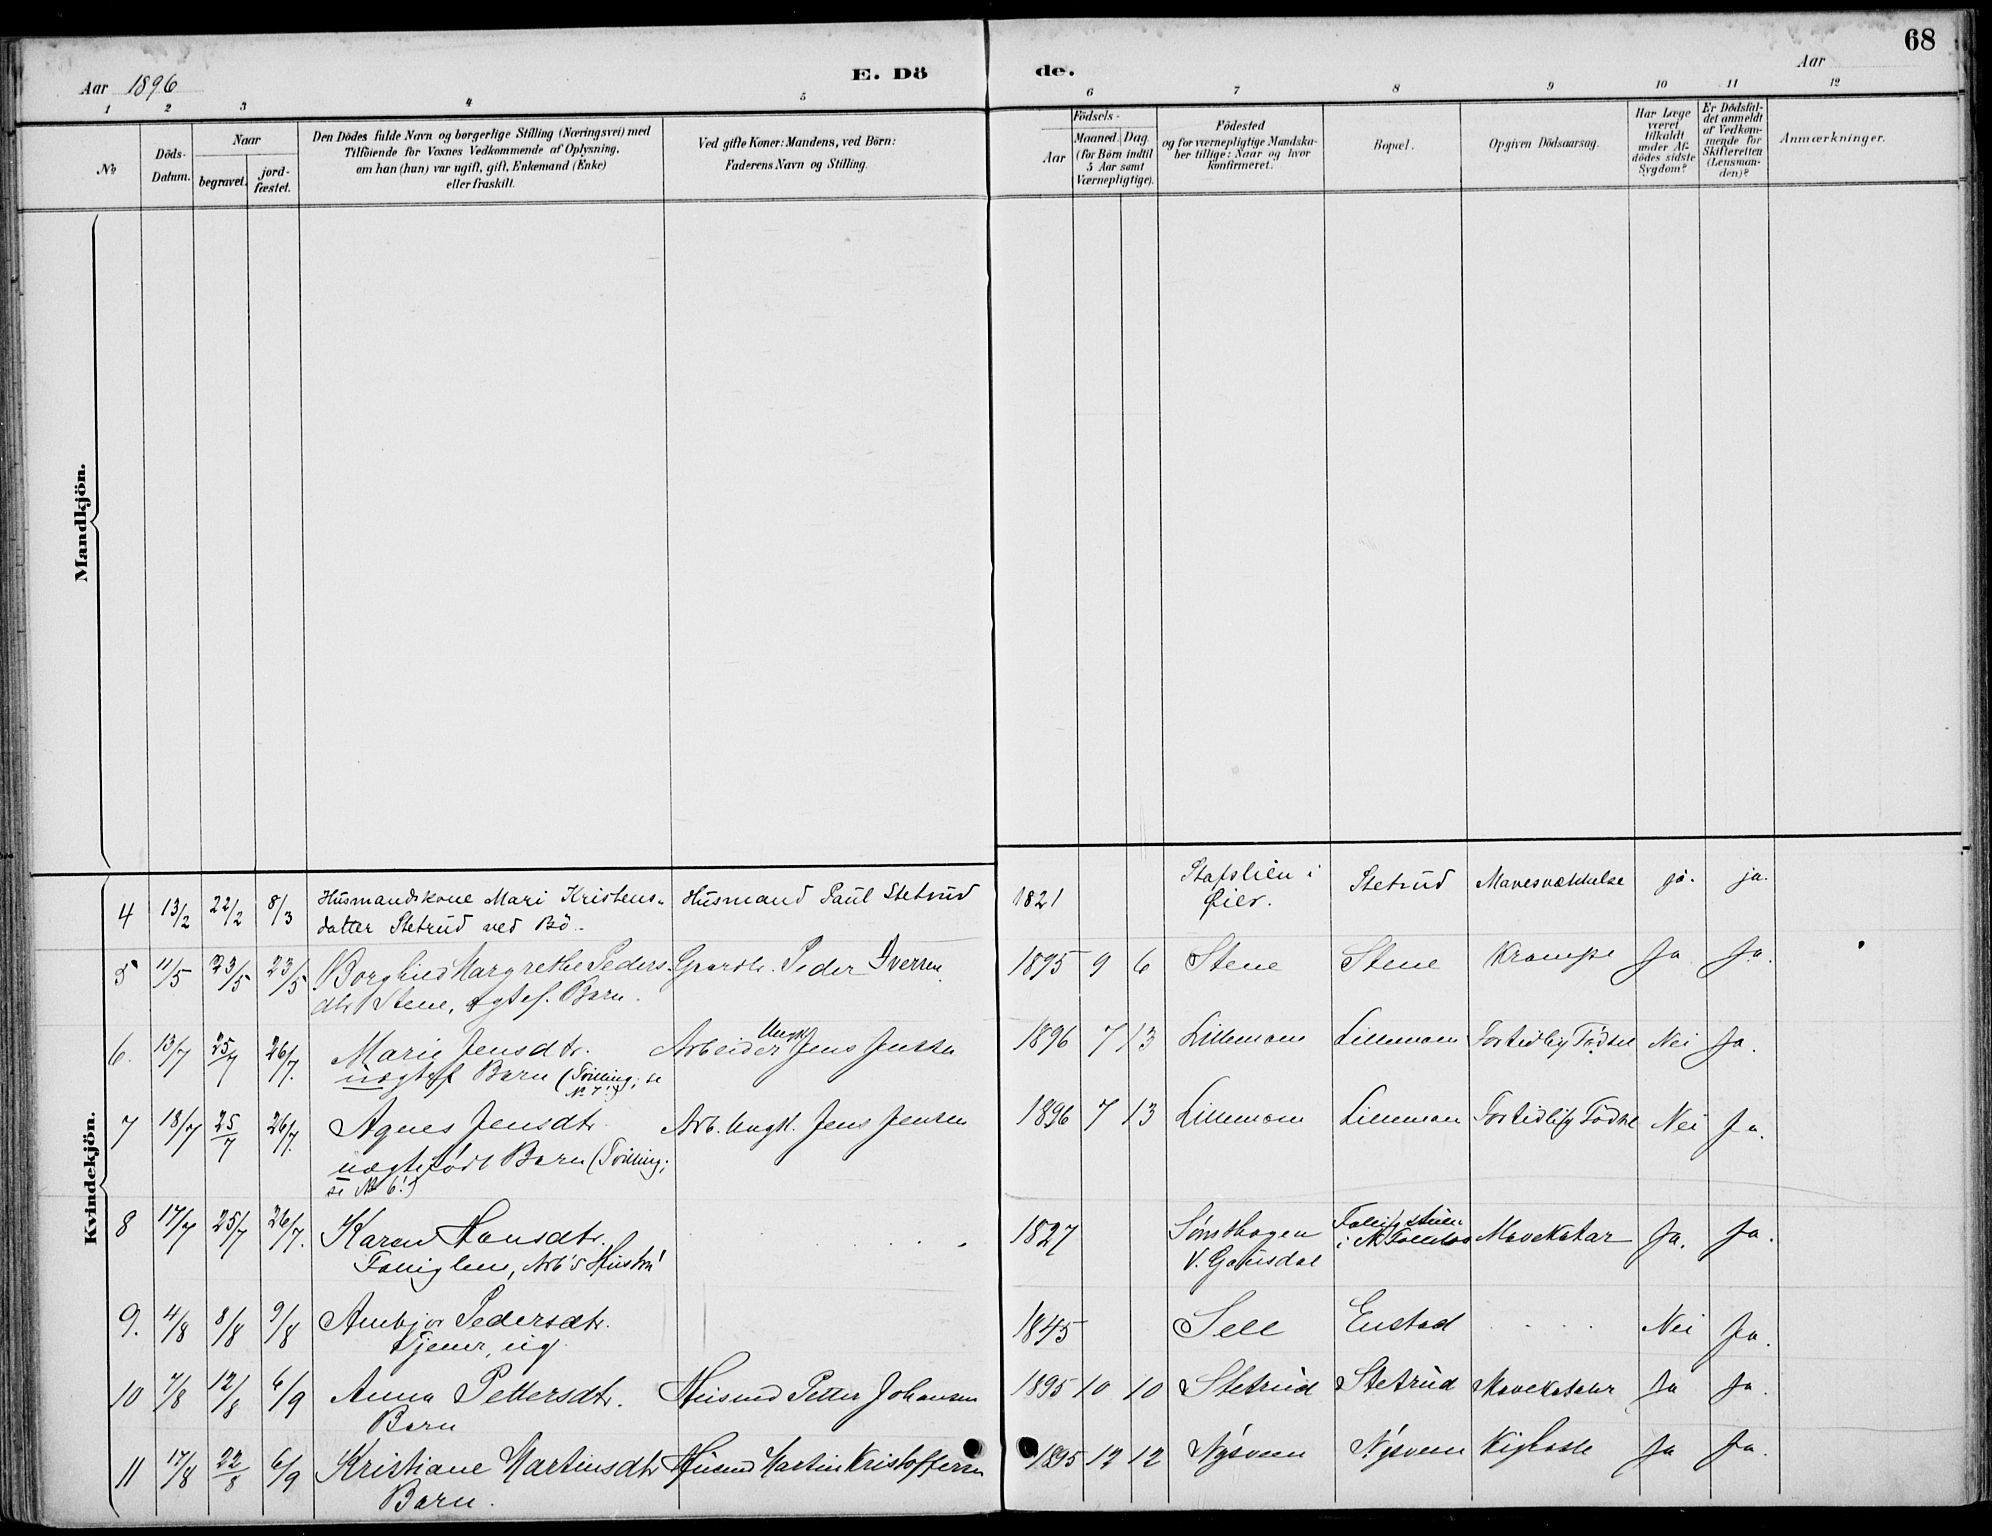 68
Aar 1896
E. Dö
de.
Aar
1 2 3 4 5 6 7 8 9 10 11 12
No
Döds-
Datum.
Naar
begravet.
jord-
fæstet.
Den Dödes fulde Navn og borgerlige Stilling (Næringsvei) med
Tilföiende for Voxnes Vedkommende af Oplysning,
om han (hun) var ugift, gift, Enkemand (Enke)
eller fraskilt.
Ved gifte Koner: Mandens, ved Börn:
Faderens Navn og Stilling.
Födsels-
Aar
Maaned. Dag
(for Börn indtil
5 Aar samt
Værnepligtige).
Födested
og for værnepligtige Mandska-
ber tillige: Naar og hvor
konfirmeret.
Bopæl.
Opgiven Dödsaarsag.
Har Læge
været
tilkaldt
under Af-
dödes sidste
Sygdom?
Er Dödsfal-
det anmeldt
af Vedkom-
mende for
Skifteretten
(Lensman-
den)?
Anmærkninger.
Mandkjön.
Kvindekjön.
4 13/2 22/2 8/3 Husmandskone Mari Kristens- Husmand Paul Stetrud 1821 Stafslien i Stetrud Mavesvækkelse ja. ja.
datter Stetrud ved Bö. Öier.
5 11/5 23/5 23/5 Borghild Margrethe Peders- Gaardbr. Peder Iversen 1895 9 6 Stene Stene Krampe Ja Ja.
dtr Stene, ægtef. Barn.
6. 13/7 25/7 26/7. Marie Jensdtr. Arbeider Ungk. Jens Jensen 1896 7 13 Lillemoen Lillemoen For tidlig Födsel Nei Ja.
uægtef Barn (Tvilling; se
No 7!)
7 18/7 25/7 26/7. Agnes Jensdtr. Arb. Ungk. Jens Jensen 1896 7 13 Lillemoen Lillemoen For tidlig Födsel Nei Ja.
uægtefödt Barn (Tvilling;
se No 6!)
8 17/7 25/7 26/7. Karen Hansdtr. 1827 Sönsthagen Mavekatar Ja. Ja.
Arb's Hustru V. Gausdal
9. 4/8 8/8 9/8 Ambjor Pedersdtr. 1845 Sell Enstad Nei Ja.
Tjener, ug.
10 7/8 12/8 6/9 Anna Pettersdtr. Husmd Petter Johansen 1895 10 10 Stetrud Stetrud Mavekatarr Ja Ja.
Barn
11 17/8 22/8 6/9 Kristiane Martinsdtr Husmd Martin Kristoffersen 1895 12 12 Nysveen Nysveen Kighoste Ja Ja.
Barn.